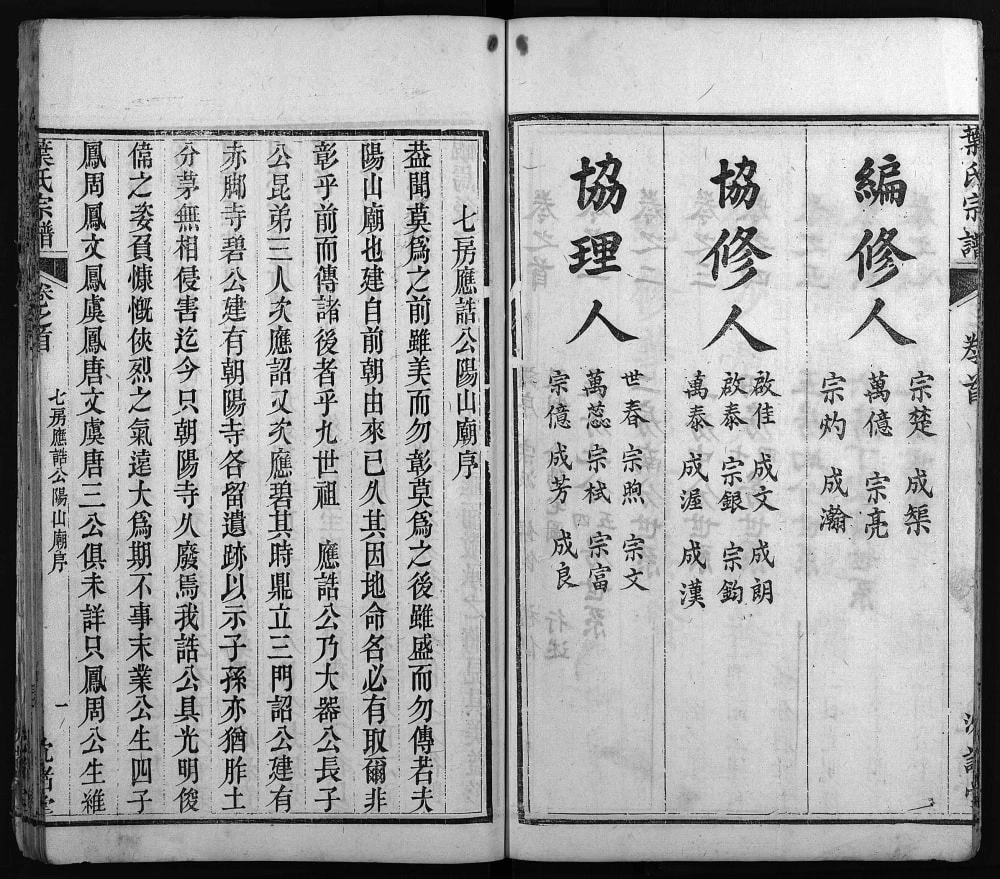 葉氏宗譜
卷首
編修人
宗楚 成榘
萬億 宗亮
宗灼 成瀚
協修人
啟佳 成文 成朗
啟泰 宗銀 宗鈞
萬泰 成渥 成漢
協理人
世春 宗煦 宗文
萬蕊 宗栻 宗富
宗億 成芳 成良
七房應誥公陽山廟序
葢聞莫爲之前雖美而勿彰莫爲之後雖盛而勿傳若夫
陽山廟也建自前朝由來已久其因地命名必有取爾非
彰乎前而傳諸後者乎九世祖 應誥公乃大器公長子
公昆弟三人次應詔又次應碧其時鼎立三門詔公建有
赤脚寺碧公建有朝陽寺各留遺跡以示子孫亦猶胙土
分茅無相侵害迄今只朝陽寺久廢焉我誥公具光明俊
偉之姿負慷慨俠烈之氣遠大爲期不事末業公生四子
鳳周鳳文鳳虞鳳唐文虞唐三公俱未詳只鳳周公生維
葉氏宗譜
卷之首
七房應誥公陽山廟序
一